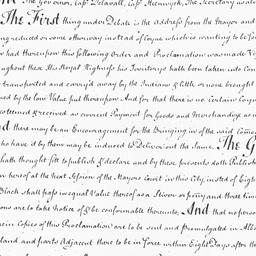 The Governor, Capt Delavall, Capt Steenwyck, The Secretary as also
The First thing under Debate is the address from the Mayor and
ing reduced or some other way instead of Coyne which is wanting to be fo
w had thereupon this following Order and Proclamation was made Vizt
oughout these His Royal Highness his Territorys hath been taken into Con
transported and carry'd away by the Indians & little or none brought
ued by the low Value put thereupon And for that there is no Certain Coyne
esteemed & received as current Payment for Goods and Merchandize as w
d there may be an Encouragement for the Bringing in of the said Comod
ho have it by them may be induced to Deliver out the Same. The G
hath thought fitt to publish & declare and by these presents doth Publish
n hereof at the next Session of the Mayors Court in this City, insted of Eight
Black shall pass in equal Value thereof as a Stiver or penny and three times
ons are to take Notice of & be conformable thereunto, And that no person
rein Copies of this Proclamation are to be sent and promulgated in All
land and parts Adjacent there to be in force within Eight Days after the